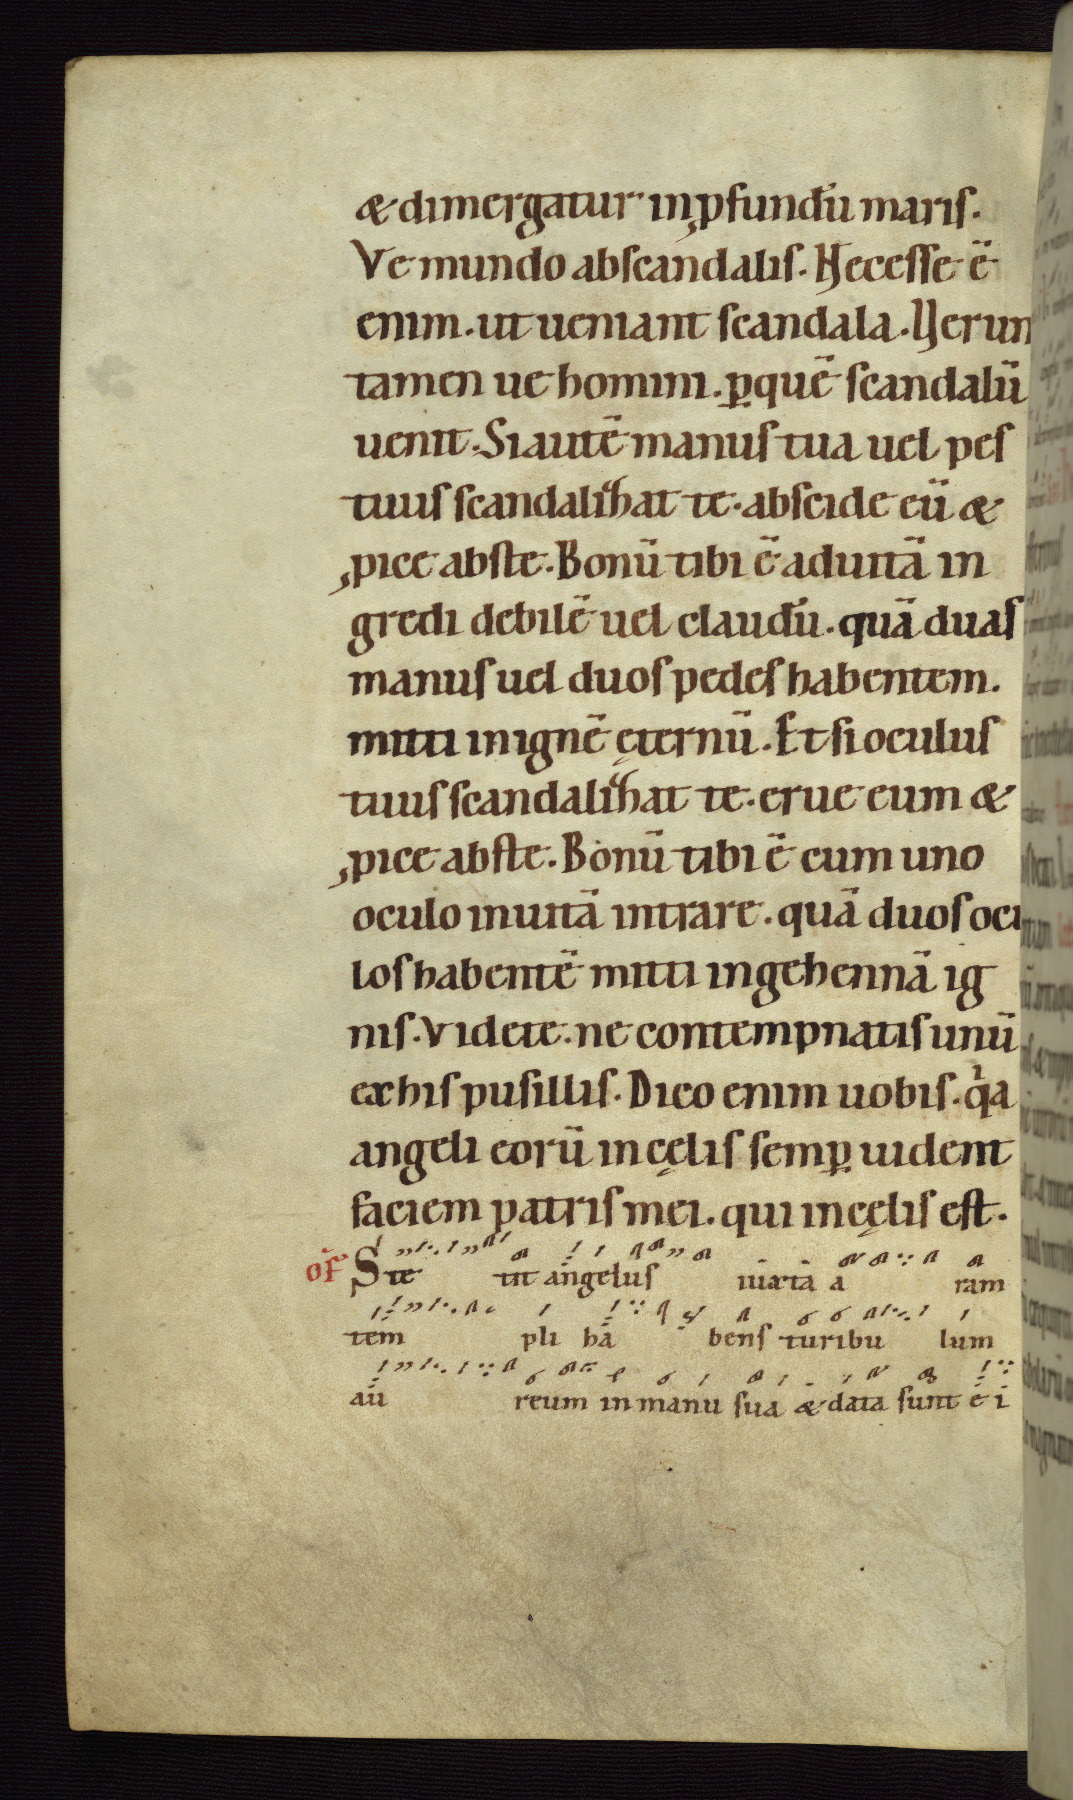 & dimergatur in ꝓfundũ maris.
Ve mundo ab scandalis. Necesse ẽ
enim. ut ueniant scandala. Uerun
tamen ue homini. ꝑ quẽ scandalũ
uenit. Si autẽ manus tua uel pes
tuus scandalihat te. abscide eũ &
ꝓice abs te. Bonũ tibi ẽ ad uitã in
gredi debilẽ uel claudũ. quã duas
manus uel duos pedes habentem.
mitti in ignẽ ęternũ. Et si oculus
tuus scandalihat te. erue eum &
ꝓice abs te. Bonũ tibi ẽ cum uno
oculo in uitã intrare. quã duos ocu
los habentẽ mitti in gehennã ig
nis. Videte. ne contempnatis unũ
ex his pusillis. Dico enim uobis. qͥa
angeli eorũ in cęlis semꝑ uident
faciem patris mei. qui in cęlis est.
of̃ Ste tit angelus iuxta a ram
tem pli ha bens turibu lum
au reum in manu sua & data sunt e i